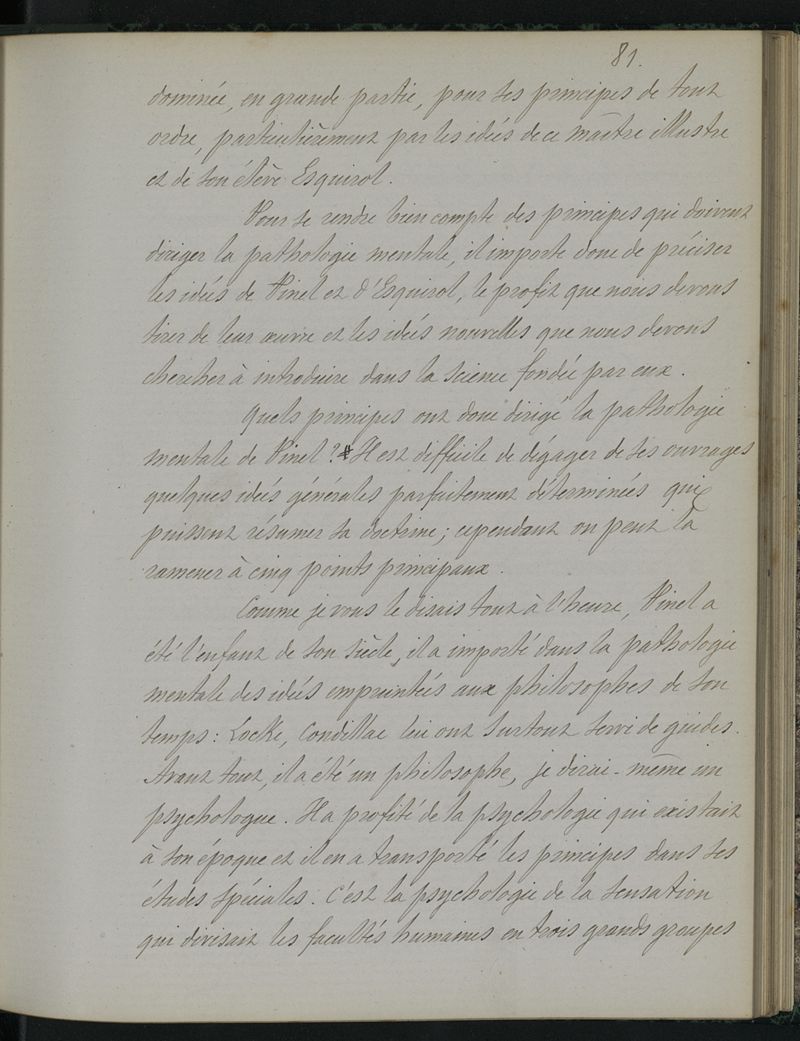 81.
dominée, en grande partie, pour ses principes de tout
ordre, particulièrement par les idées de ce maître illustre
et de son élève Esquirol.
Pour se rendre bien compte des principes qui doivent
diriger la pathologie mentale, il importe donc de préciser
les idées de Pinel et d'Esquirol, le profit que nous devons
tirer de leur œuvre et les idées nouvelles que nous devons
chercher à introduire dans la science fondée par eux.
Quels principes ont donc dirigé la pathologie
mentale de Pinel? Il est difficile de dégager de ses ouvrages
quelques idées générales parfaitement déterminées qui
puissent résumer sa doctrine; cependant on peut la
ramener à cinq points principaux.
Comme je vous le disais tout à l'heure, Pinel a
été l'enfant de son siècle, il a importé dans la pathologie
mentale des idées empruntées aux philosophes de son
temps: Locke, Condillac lui ont surtout servi de guides.
Avant tout, il a été un philosophe, je dirai-même un
psychologue. Il a profité de la psychologie qui existait
à son époque et il en a transporté les principes dans ses
études spéciales. C'est la psychologie de la sensation
qui divisait les facultés humaines en trois grands groupes